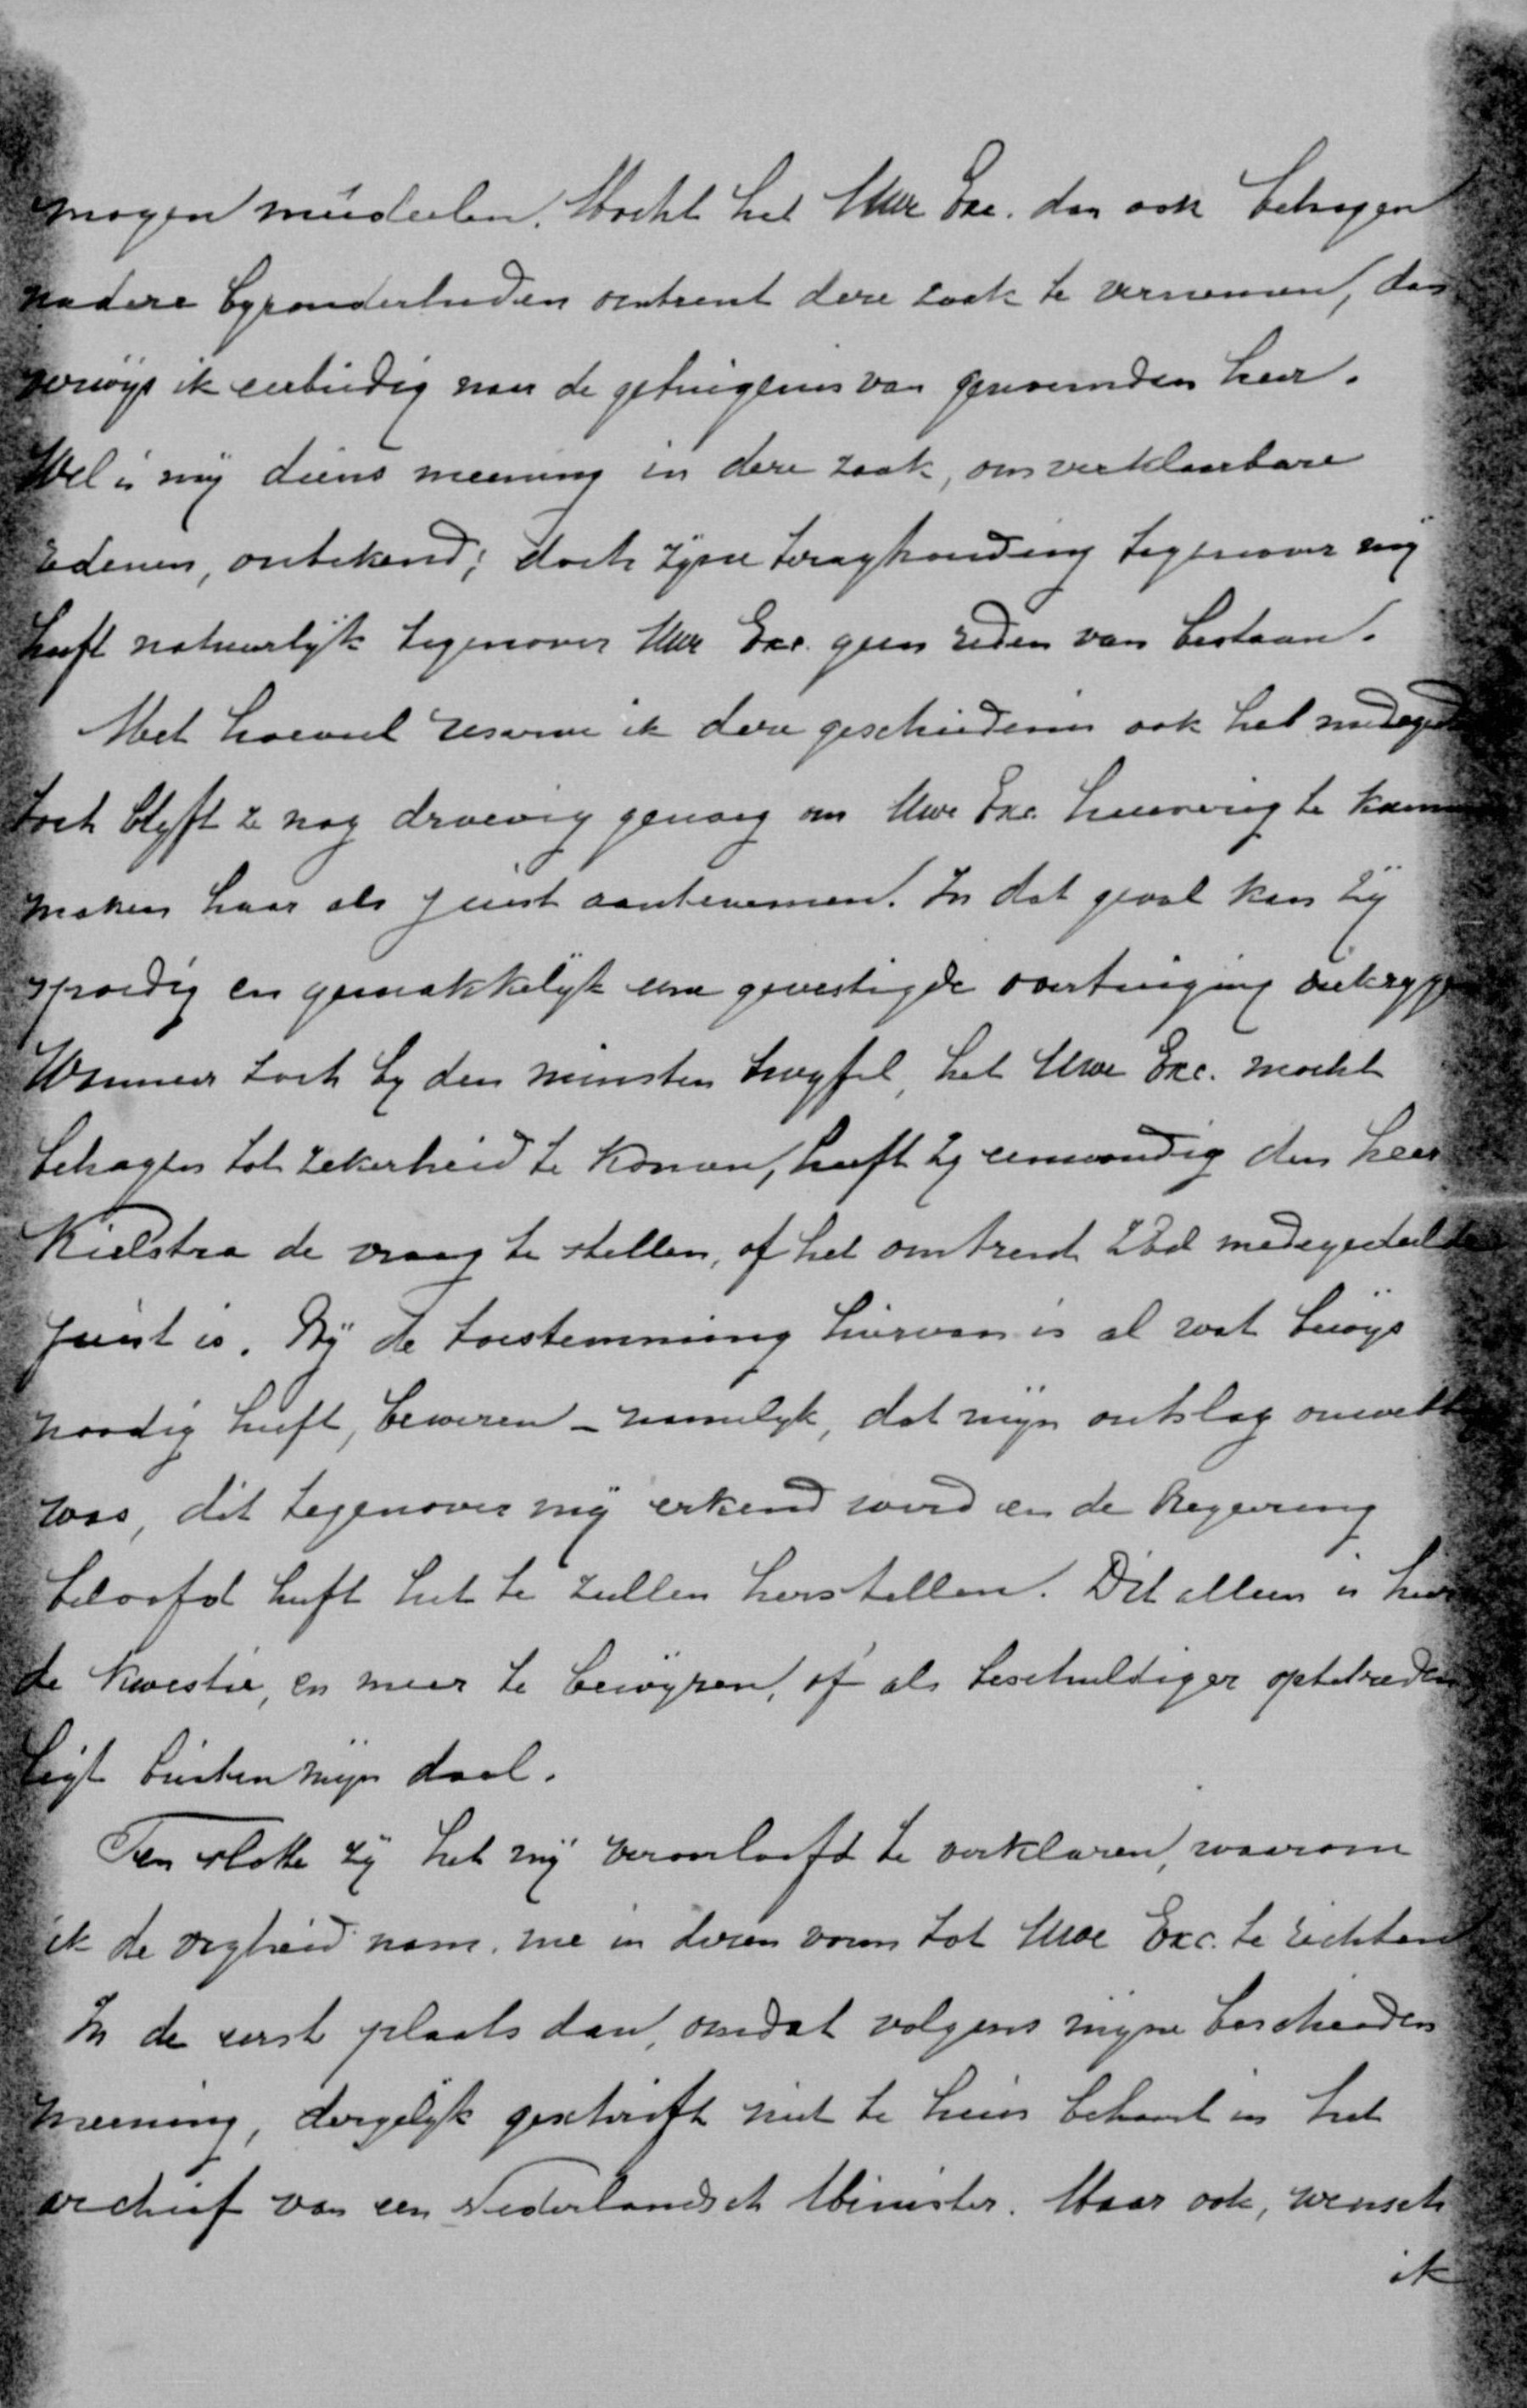 mogen meêdeelen. Mocht het Uwe Exc. dan ook behagen
nadere byzonderheden omtrent deze zaak te vernemen, dan
verwijs ik eerbiedig naar de getuigenis van genoemden heer.
Wel is mij diens meening in deze zaak, om verklaarbare
redenen, onbekend; doch zijne terughouding tegenover mij
heeft natuurlijk tegenover Uwe Exc. geen reden van bestaan.
Met hoeveel reserve ik deze geschiedenis ook heb
toch blyft ze nog droevig genoeg om Uwe Exc. huiverig te
maken haar als juist aantenemen. In dat geval kan Zij
spoedig en gemakkelijk eene gevestigde overtuiging
Wanneer toch by den minsten twyfel, het Uwe Exc. mocht
behagen tot zekerheid te komen, heeft Zy eenvoudig den heer
Kielstra de vraag te stellen, of het omtrent medegedeelde
juist is. Bij de toestemming hiervan is al wat bewijs
noodig heeft, bewezen – namelyk, dat mijn ontslag
was, dit tegenover mij erkend werd en de Regeering
beloofd heeft het te zullen herstellen. Dit alleen is hier
de kwestie, en meer te bewijzen, óf als beschuldiger optetreden,
ligt buiten mijn doel.
Ten slotte zij het mij veroorloofd te verklaren, waarom
ik de vryheid nam, me in dezen vorm tot Uwe Exc. te richten
In de eerst plaats dan, omdat volgens mijne bescheiden
meening, dergelijk geschrift niet te huis behoort in het
archief van een Nederlandsch Minister. Maar ook, wensch
ik